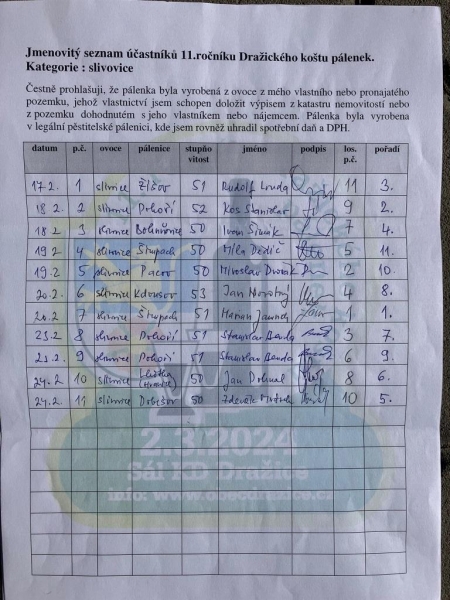 Jmenovitý seznam účastníků 11.ročníku Dražického koštu pálenek.
Kategorie : slivovice
Čestně prohlašuji, že pálenka byla vyrobená z ovoce z mého vlastního nebo pronajatého
pozemku, jehož vlastnictví jsem schopen doložit výpisem z katastru nemovitostí nebo
z pozemku dohodnutém s jeho vlastníkem nebo nájemcem. Pálenka byla vyrobena
v legální pěstitelské pálenici, kde jsem rovněž uhradil spotřební daň a DPH.
datum p.č. ovoce pálenice stupňovitost jméno podpis los. p.č. pořadí
17.2. 1 slivovice 51 Rudolf Louda 11 3.
18.2. 2 slivovice Pohoří 52 Kos Stanislav 9 2.
18.2 3 slivovice 50 Ivan 7 4.
19.2 4 slivovice 50 Míla Dědič 5 11.
19.2 5 slivovice Pacov 50 Miroslav Dvořák 2 10.
20.2. 6 slivovice Kdousov 53 Jan Novotný 4 8.
20.2 7 slivovice 51 Marian 1 1.
23.2 8 slivovice Pohoří 51 Stanislav Benda 3 7.
23.2. 9 slivovice Pohoří 51 Stanislav Benda 6 9.
24.2. 10 slivovice 50 Jan 8 6.
24.2. 11 slivovice 50 Zdeněk 10 5.
2.3.2024
Sál KD Dražice
info: www.obecdrazice.cz